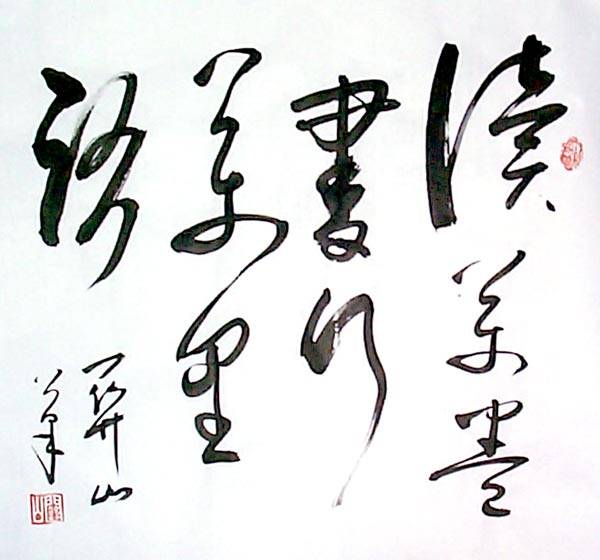 讀萬卷
書行
萬里
路
關山